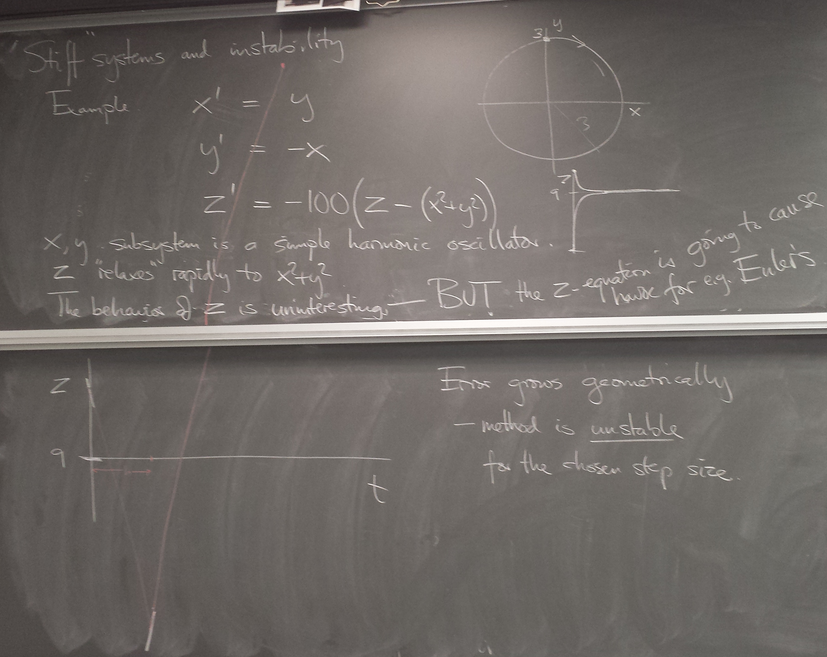 "Stiff" systems and instability
Example x' = y
y' = -x
z' = -100(z - (x²+y²))
x, y subsystem is a simple harmonic oscillator.
z "relaxes" rapidly to x²+y²
The behavior of z is uninteresting. — BUT the z-equation is going to cause
havoc for eg. Euler's
3 y
x
3
z
9
z
9
t
Error grows geometrically
— method is unstable
for the chosen step size.